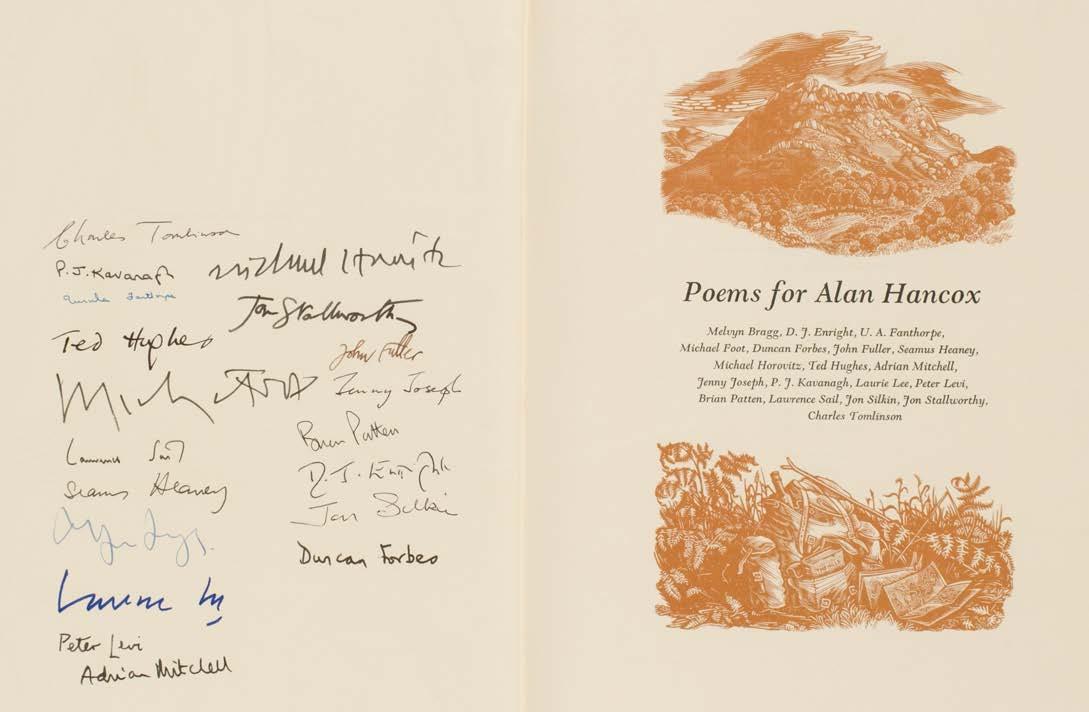 Charles Tomlinson
P. J. Kavanagh
Ursula Fanthorpe
Ted Hughes
Michael Foot
Lawrence Sail
Seamus Heaney
Laurie Lee
Peter Levi
Adrian Mitchell
Michael Horovitz
Jon Stallworthy
John Fuller
Jenny Joseph
Brian Patten
D. J. Enright
Jon Silkin
Duncan Forbes
Poems for Alan Hancox
Melvyn Bragg, D. J. Enright, U. A. Fanthorpe,
Michael Foot, Duncan Forbes, John Fuller, Seamus Heaney,
Michael Horovitz, Ted Hughes, Adrian Mitchell,
Jenny Joseph, P. J. Kavanagh, Laurie Lee, Peter Levi,
Brian Patten, Lawrence Sail, Jon Silkin, Jon Stallworthy,
Charles Tomlinson